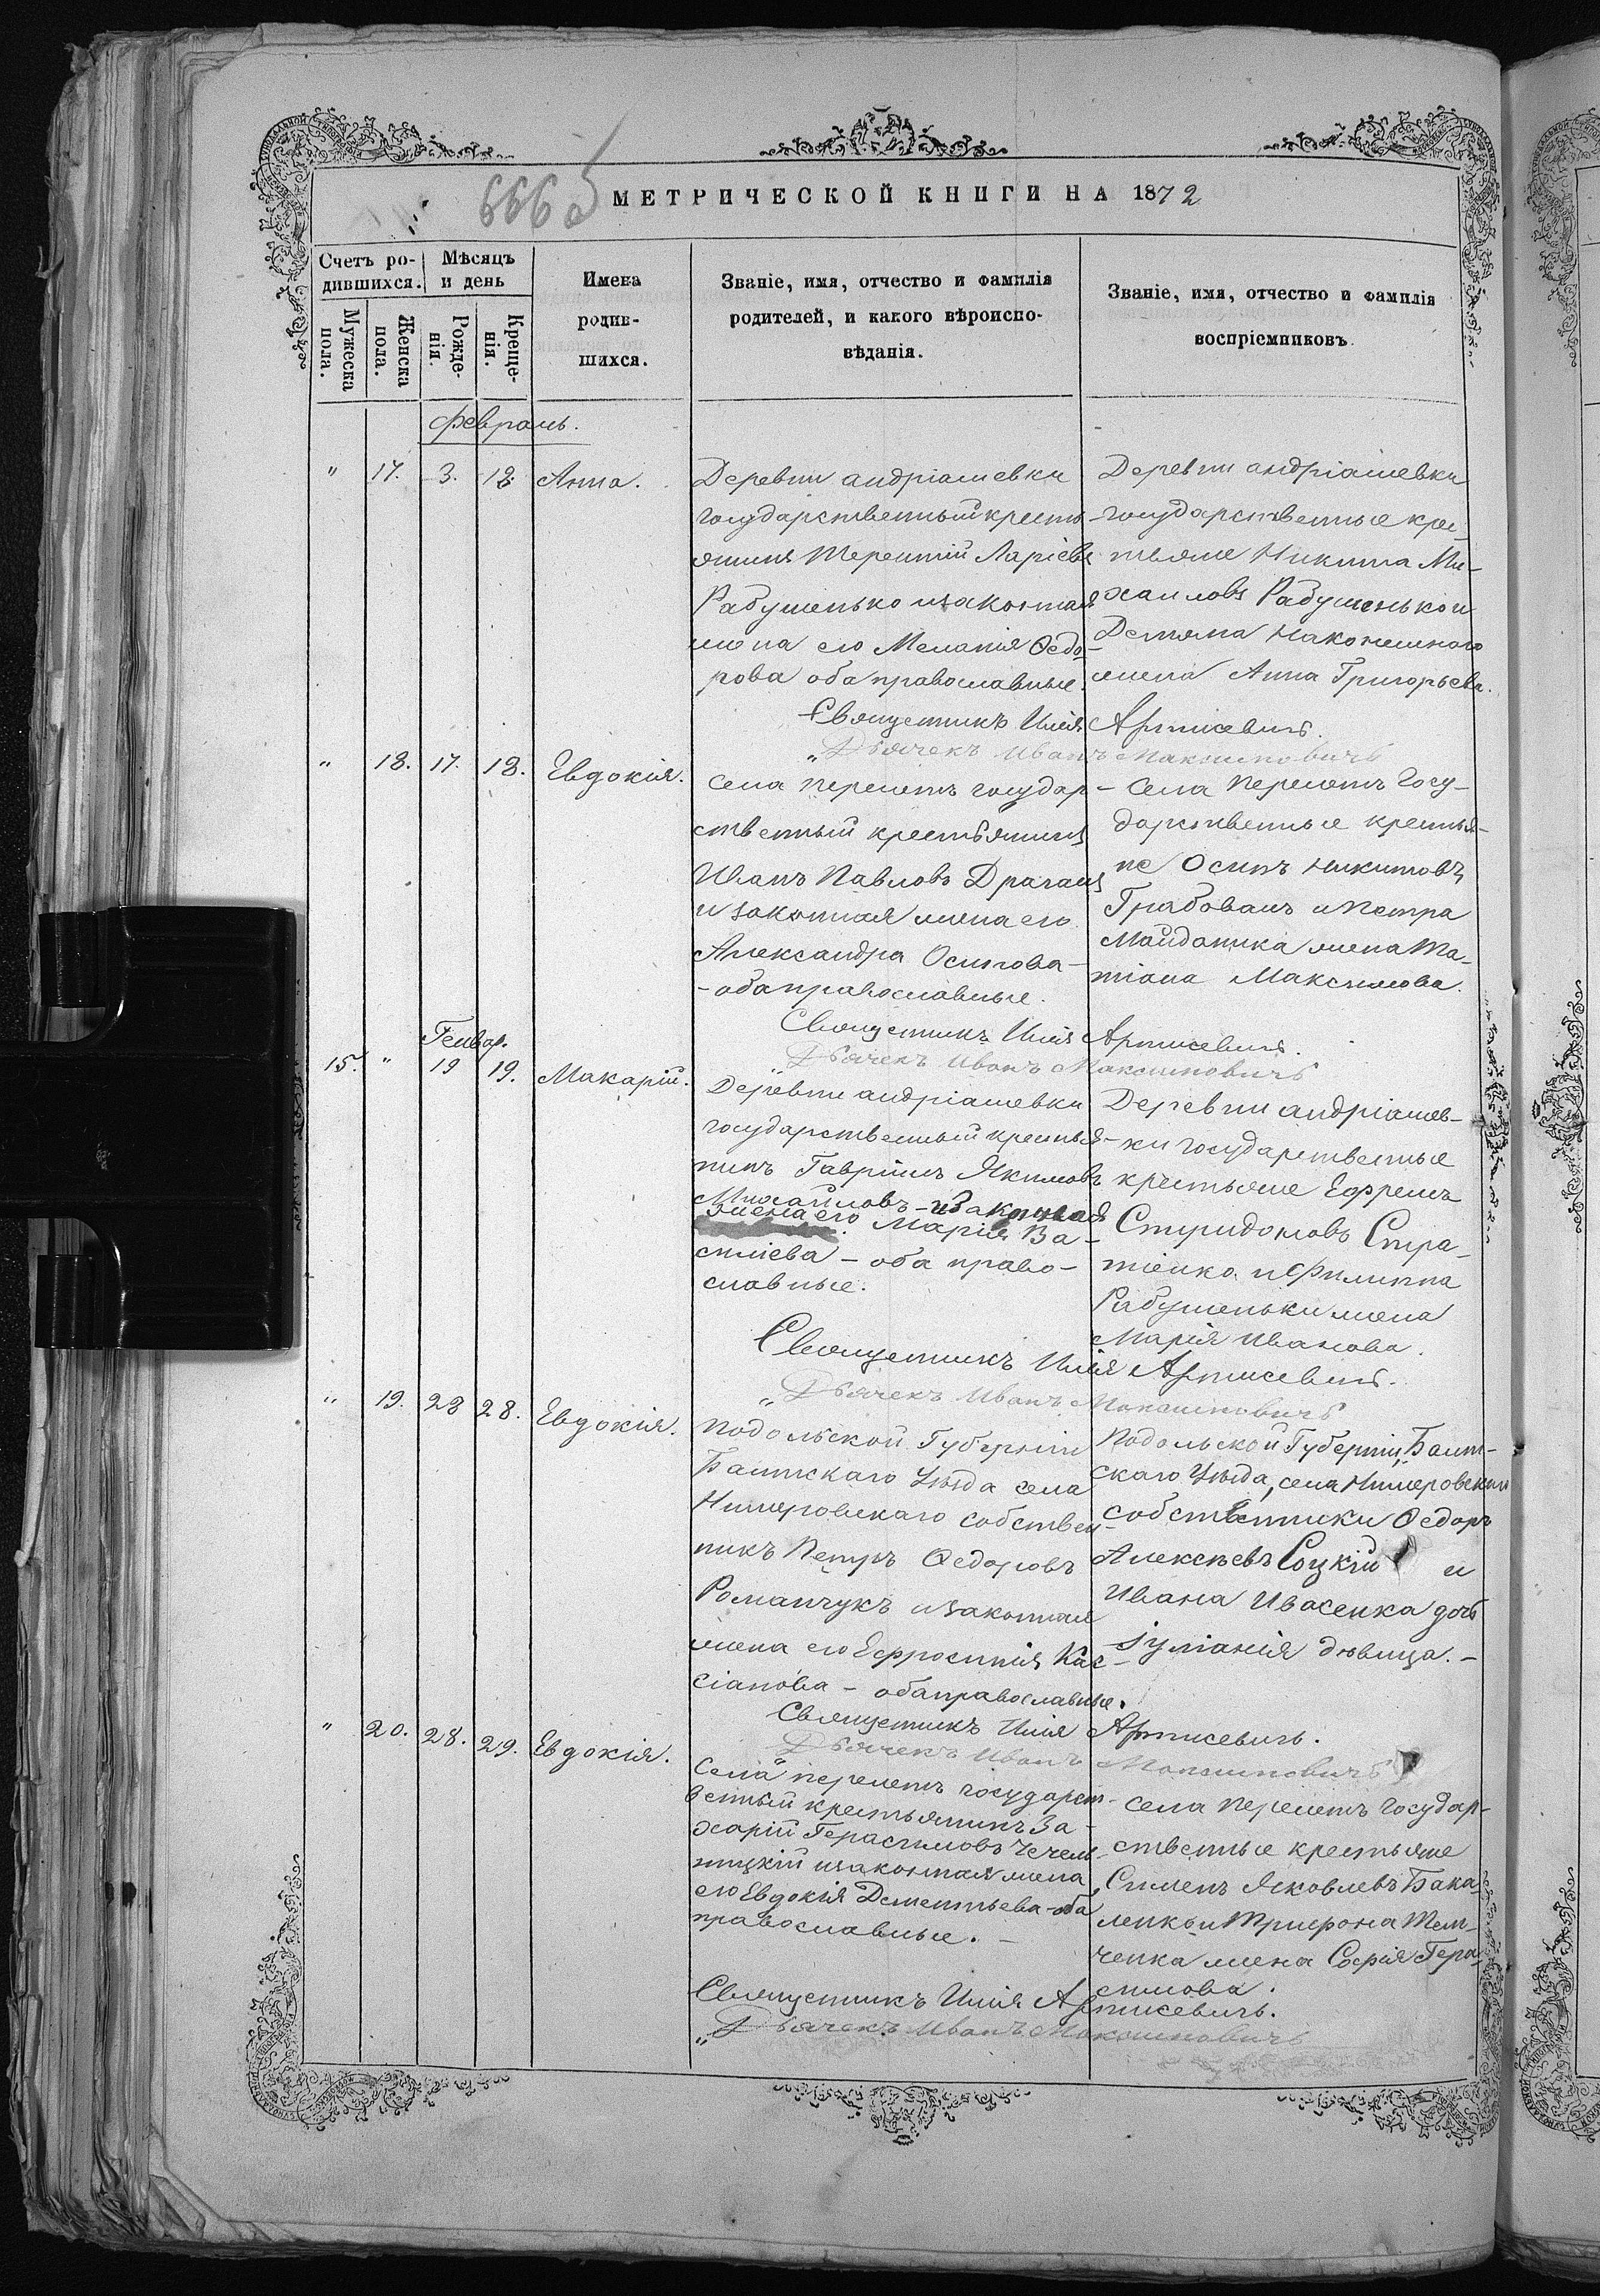 6665
МЕТРИЧЕСКОЙ КНИГИ НА 1872
Счетъ ро-
дившихся.
Мѣсяцъ
и день
Мужеска
пола.
Женска
пола.
Рожде-
нія.
Креще-
нія.
Имена
родив-
шихся.
Званіе, имя, отчество и фамилія
родителей, и какого вѣроиспо-
вѣданія.
Званіе, имя, отчество и фамилія
воспріемниковъ
Февраль.
" 17. 3. 12. Анна.
Деревни андріашевки
государственный кресть-
янинъ Терентій Ларіевъ
Рабушенько изаконная
жена его Меланія Ѳедо-
рова оба православные.
Деревни андріашевки
государственные крес-
тьяне Никита Ми-
хаиловъ Рабушенько и
Демяна Наконешнаго
жена Анна Григорьева.
Священникъ Илія Артисевичъ.
"Дьячекъ Иванъ Максимовичъ
" 18. 17. 18. Евдокія.
Села Перелетъ государ-
ственный крестьянинъ
Иванъ Павловъ Драганъ
и законная жена его
Александра Осипова-
-оба православные.
Села Перелетъ Госу-
дарственные крестья-
не Осипъ Никитовъ
Грабованъ и Петра
Майданика жена Та-
тіана Максимова.
Священникъ Илія Артисевичъ.
Дьячекъ Иванъ Максимовичъ
Генвар.
15. " 19 19. Макарій.
Деревни андріашевки
государственный крестья-
нинъ Гавріилъ Якимовъ
Михайловъ-изаконная
жена его Марія Ва-
силіева - оба право-
славные.
Деревни андріашев-
ки государственные
крестьяне Ефремъ
Спиридоновъ Стра-
тіенко и Филиппа
Рабушеньки жена
Марія Иванова.
Священникъ Илія Артисевичъ.
"Дьячекъ Иванъ Максимовичъ
" 19. 28 28. Евдокія.
Подольской Губерніи
Балтскаго Уѣзда села
собствен-
никъ Петръ Ѳедоровъ
Романчукъ изаконная
жена его Ефросинія Кас-
сіанова - оба православные.
Подольской Губерніи, Балт-
скаго Уѣзда, села
собственники Ѳедоръ
Алексѣевъ Соцкій и
Ивана Ивасенка дочь
Іуліанія дѣвица. -
Священникъ Илія Артисевичъ.
Дьячекъ Иванъ Максимовичъ
" 20. 28. 29. Евдокія.
Села перелетъ государст-
венный крестьянинъ За-
харій Герасимовъ Чечель-
ницкій изаконная жена
его Евдокія Дементьева-оба
православные. -
села Перелетъ государ-
ственные крестьяне
Симеонъ Яковлевъ Бака-
ленко и Трифона Тем-
ченка жена Софія Гера-
симова.
Священникъ Илія Артисевичъ.
"Дьячекъ Иванъ Максимовичъ